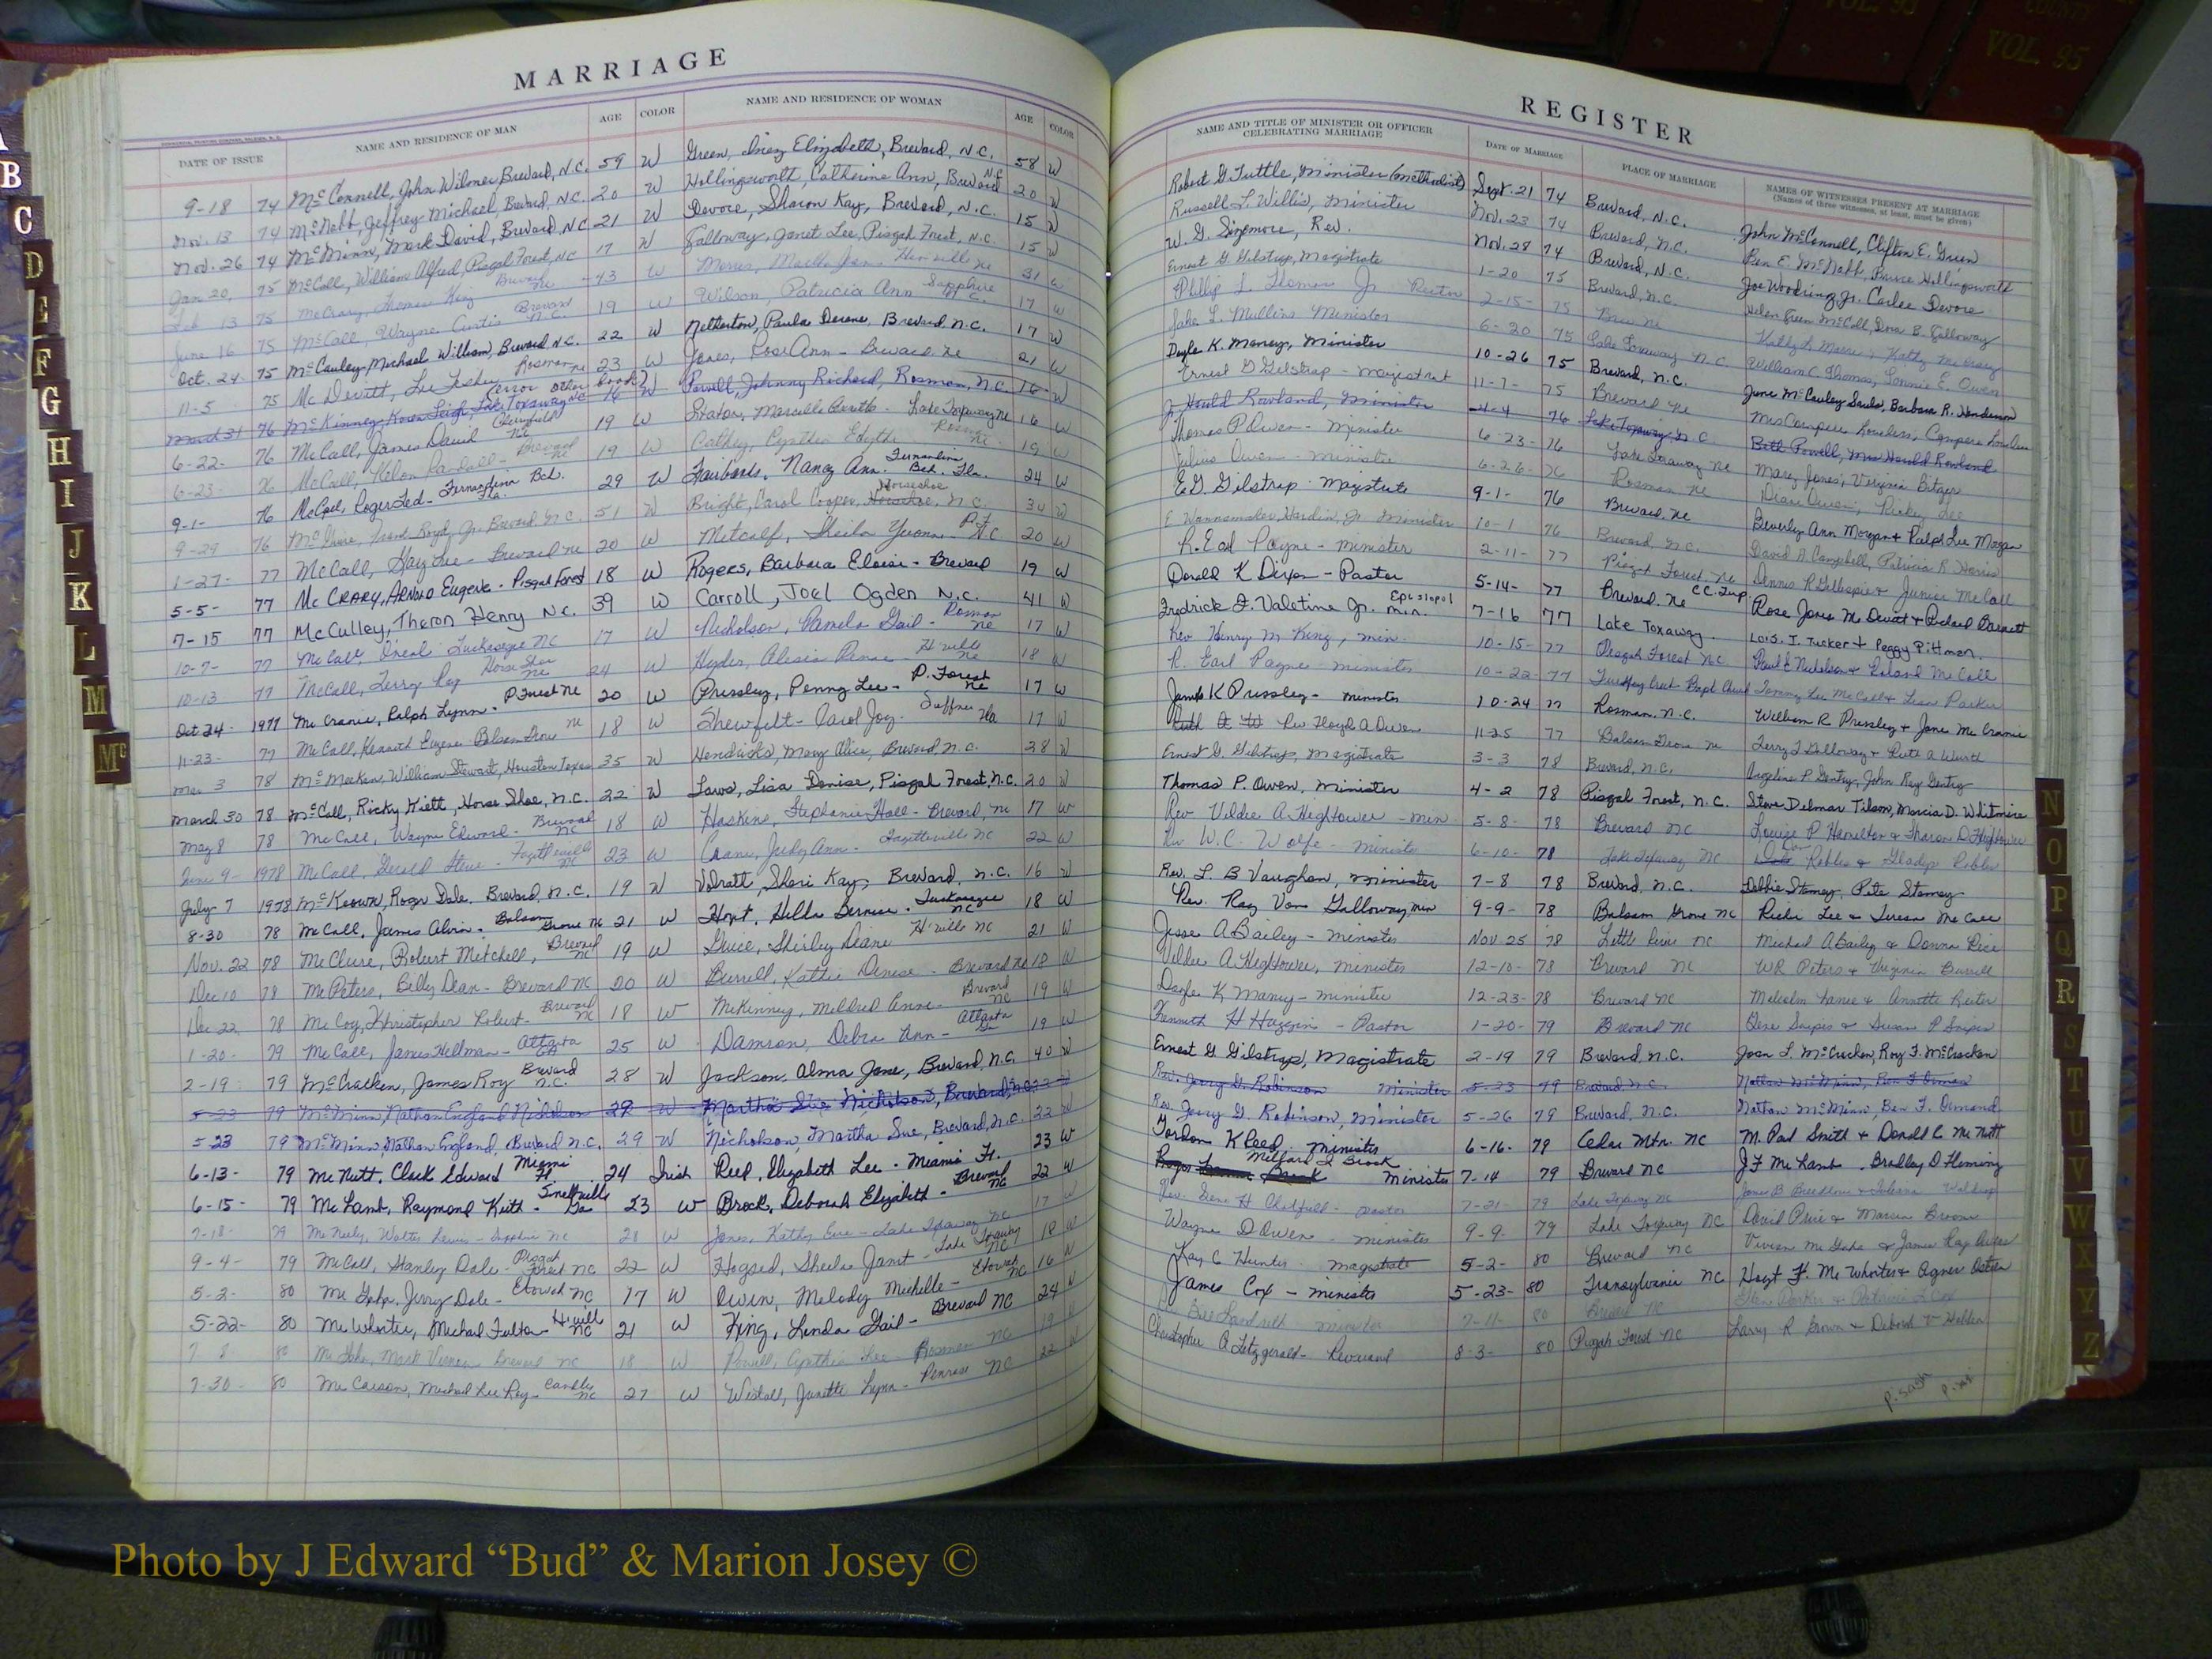 MARRIAGE
DATE OF ISSUE NAME AND RESIDENCE OF MAN AGE COLOR NAME AND RESIDENCE OF WOMAN AGE COLOR
9-18 74 McConnell, John Wilmer Brevard, N.C. 59 W Green, Inez Elizabeth, Brevard, N.C. 58 W
Nov. 13 74 McNabb, Jeffrey Michael, Brevard, N.C. 20 W Hollingsworth, Catherine Ann, Brevard N.C. 20 W
Nov. 26 74 McMinn, Mark David, Brevard, N.C. 21 W Devore, Sharon Kay, Brevard, N.C. 15 W
Jan 20, 75 McCall, William Alfred, Pisgah Forest, NC 17 W Galloway, Janet Lee, Pisgah Forest, N.C. 15 W
Feb 13 75 McCrary, Thomas King Brevard NC 43 W 31 W
June 16 75 McCall, Wayne Curtis Brevard N.C. 19 W Wilson, Patricia Ann Sapphire N.C. 17 W
Oct. 24 75 McCauley, Michael William, Brevard N.C. 22 W Netherton, Paula Derene, Brevard, N.C. 17 W
11-5 75 McDevitt, Lee Rosman NC 23 W Jones, Rose Ann - Brevard NC 21 W
March 31 76 McKinney, Karen Leigh, Lake Toxaway NC (error other book) 16 W Powell, Johnny Richard, Rosman, N.C. 16 W
6-22- 76 McCall, James David NC 19 W Lake Toxaway NC 16 W
6-23- 76 McCall, Brevard NC 19 W Cathey, Cynthia Edythe Rosman NC 19 W
9-1- 76 McCall, Roger Ted - Fernandina Bch. Fla. 29 W Fairbanks, Nancy Ann. Fernandina Bch. Fla. 24 W
9-29 76 Brevard, N.C. 51 W Bright, Carol Cooper, Horseshoe, N.C. 34 W
1-27- 77 McCall, Hoy Lee - Brevard NC 20 W Metcalf, Sheila NC 20 W
5-5- 77 McCrary, Arnold Eugene - Pisgah Forest 18 W Rogers, Barbara Eloise - Brevard 19 W
7-15 77 McCulley, Theron Henry N.C. 39 W Carroll, Joel Ogden N.C. 41 W
10-7- 77 McCall, Tuckasegee NC 17 W Nicholson, Pamela Gail - Rosman NC 17 W
10-13 77 McCall, Terry Ray Horse Shoe NC 24 W Hyder, Alesia Renae - H'ville NC 18 W
Oct 24- 1977 McCranie, Ralph Lynn - P. Forest NC 20 W Pressley, Penny Lee - P. Forest NC 17 W
11-23- 77 McCall, Kenneth Eugene Balsam Grove NC 18 W Shewfelt - Carol Joy. Fla 17 W
Mar 3 78 McMeekin, William Stewart, Houston Texas 35 W Hendricks, Mary Alice, Brevard, N.C. 28 W
March 30 78 McCall, Ricky Kieth, Horse Shoe, N.C. 22 W Laws, Lisa Denise, Pisgah Forest, N.C. 20 W
May 8 78 McCall, Wayne Edward - Brevard NC 18 W Haskins, Stephanie Hall - Brevard, NC 17 W
June 9- 1978 McCall, Gerald Steve - NC 23 W Crane, Judy Ann - Fayetteville NC 22 W
July 7 1978 McKeown, Roger Dale, Brevard, N.C. 19 W Sheri Kay, Brevard, N.C. 16 W
8-30 78 McCall, James Alvin - Balsam Grove NC 21 W Hoyt, Hilla Tuckasegee NC 18 W
Nov. 22 78 McClure, Robert Mitchell, Brevard NC 19 W Guice, Shirley Diane H'ville NC 21 W
Dec 10 78 McPeters, Billy Dean - Brevard NC 20 W Burrell, Kathie Denise - Brevard NC 18 W
Dec 22 78 McCoy, Khristopher Robert - Brevard NC 18 W McKinney, Mildred Anne - Brevard NC 19 W
1-20- 79 McCall, James Hellman - Atlanta GA 25 W Damron, Debra Ann - Atlanta Ga 19 W
2-19 79 McCracken, James Roy Brevard N.C. 28 W Jackson, Alma Jane, Brevard, N.C. 40 W
5-23 79 McMinn, Nathan England Nicholson 29 W Martha Sue Nicholson, Brevard, N.C. 22 W
5-23 79 McMinn, Nathan England, Brevard N.C. 29 W Nicholson, Martha Sue, Brevard, N.C. 22 W
6-13- 79 McNutt, Clark Edward Miami Fl 24 Irish Reed, Elizabeth Lee - Miami Fl. 23 W
6-15- 79 McLamb, Raymond Keith - Snellville Ga 23 W Brock, Deborah Elizabeth - Brevard NC 22 W
7-18- 79 McNeely, Walter Lewis - Sapphire NC 28 W Jones, Kathy - Lake Toxaway NC 17 W
9-4- 79 McCall, Stanley Dale - Pisgah Forest NC 22 W Hogsed, Sheila Janet - Lake Toxaway NC 18 W
5-2- 80 McGaha, Jerry Dale - Etowah NC 17 W Owen, Melody Michelle - Etowah NC 16 W
5-22- 80 McWhorter, Michael Fulton H'ville NC 21 W King, Linda Gail - Brevard NC 24 W
7 8 80 McGaha, Mark Vernon Brevard NC 18 W Powell, Cynthia Lee - Rosman NC 19 W
7-30 80 McCarson, Michael Lee Roy - Candler NC 27 W Westall, Janette Lynn - Penrose NC 22 W
REGISTER
NAME AND TITLE OF MINISTER OR OFFICER CELEBRATING MARRIAGE DATE OF MARRIAGE PLACE OF MARRIAGE NAMES OF WITNESSES PRESENT AT MARRIAGE
(Names of three witnesses, at least, must be given)
Robert G. Tuttle, Minister (Methodist) Sept. 21 74 Brevard, N.C. John McConnell, Clifton E. Green
Russell L. Willis, Minister Nov. 23 74 Brevard, N.C. Ben E. McNabb, Hollingsworth
W. G. Sizemore, Rev. Nov. 28 74 Brevard, N.C. Joe Woodring, Jr. Carlee Devore
Ernest G. Gilstrap, Magistrate 1-20 75 Brevard, N.C. Helen Green McCall, Dora B. Galloway
Phillip L. Thomas Jr Rector 2-15- 75 Kathy McCrary
Jake L. Mullins Minister 6-20 75 Lake Toxaway N.C. William C. Thomas, Lonnie E. Owen
Doyle K. Maney, Minister 10-26 75 Brevard, N.C. June McCauley Sauls, Barbara R. Henderson
Ernest G Gilstrap - Magistrate 11-7- 75 Brevard NC
J. Harold Rowland, Minister 4-4 76 Lake Toxaway, N.C. Beth Powell, Mrs Harold Rowland
Thomas P. Owen - Minister 6-23- 76 Lake Toxaway NC Mary Jones, Virginia Bitzer
Julius Owen - Minister 6-26- 76 Rosman NC
E.G. Gilstrap - Magistrate 9-1- 76 Brevard, NC Beverly Ann Morgan & Ralph Lee Morgan
E. Wannamaker Hardin, Jr. Minister 10-1 76 Brevard, N.C. David A. Campbell, Patricia R. Harris
R. Earl Payne - Minister 2-11- 77 Pisgah Forest NC Dennis R Gillespie & Junice McCall
Donald K Dixon - Pastor 5-14- 77 Brevard, NC Rose Jones
Fredrick F. Valetine Jr. Episcopal min. 7-16 77 Lake Toxaway. Lois. I. Tucker & Peggy Pittman.
Rev Henry M King, min. 10-15- 77 Pisgah Forest NC Paul E Nicholson & Roland McCall
R. Earl Payne minister 10-22-77 Tommy Lee McCall & Lisa Parker
James K Pressley - minister 10-24 77 Rosman, N.C. William R Pressley & Jane McCranie
Rev Floyd A Owen 11-25 77 Balsam Grove NC Terry J Galloway & Ruth A Wurth
Ernest G. Gilstrap, Magistrate 3-3 78 Brevard, N.C. Angeline P. Gentry, John Ray Gentry
Thomas P. Owen, Minister 4-2 78 Pisgah Forest, N.C. Steve Delmar Tilson, Marcia D. Whitmire
Rev Vildee A Hightower - min 5-8- 78 Brevard NC Louise P Hamilton & Sharon D Hightower
Rev W.C. Wolfe - Minister 6-10- 78 Lake Toxaway NC Robles & Gladys Robles
Rev. L. B. Vaughan, minister 7-8 78 Brevard, N.C. Debbie Stamey, Pete Stamey
Rev. Ray Von Galloway, min 9-9- 78 Balsam Grove NC Richi Lee & Teresa McCall
Jesse A Bailey - minister Nov 25 78 Little River NC Michael A Bailey & Donna Rice
Vildee A Hightower, minister 12-10- 78 Brevard NC W.R. Peters & Virginia Burrell
Doyle K Maney - minister 12-23-78 Brevard NC Malcolm & Annette Reiter
Kenneth H Huggins - Pastor 1-20- 79 Brevard NC Gene Snipes & Susan P Snipes
Ernest G. Gilstrap, Magistrate 2-19 79 Brevard, N.C. Joan L. McCracken, Roy F. McCracken
Rev. Jerry G. Robinson Minister 5-23 79 Brevard N.C. Nathan McMinn, Ben F. Ormand
Rev. Jerry G. Robinson, Minister 5-26 79 Brevard, N.C. Nathan McMinn, Ben F. Ormand
Gordon K Reed minister 6-16- 79 Cedar Mtn. NC M. Paul Smith & Donald C McNutt
Milford L Brock Minister 7-14 79 Brevard NC J F McLamb, Bradley D Fleming
Rev. Gene H Chatfield - pastor 7-21- 79 Lake Toxaway NC James B Breedlove
Wayne D Owen - minister 9-9- 79 Lake Toxaway NC David Price & Marvin Broom
Kay C Hunter magistrate 5-2- 80 Brevard NC Vivian McGaha & James Ray Owen
James Cox - minister 5-23- 80 Transylvania NC Hoyt F. McWhorter & Agnes Osteen
minister 7-11- 80 Brevard NC Glen Parker & Patricia L Cox
Christopher A Fitzgerald - Reverend 8-3- 80 Pisgah Forest NC Larry R Brown & Debord
B
C
D
E
F
G
H
I
J
K
L
M
Mc
N
O
P
Q
R
S
T
U
V
W
X
Y
Z
VOL. 95
Photo by J Edward “Bud” & Marion Josey ©